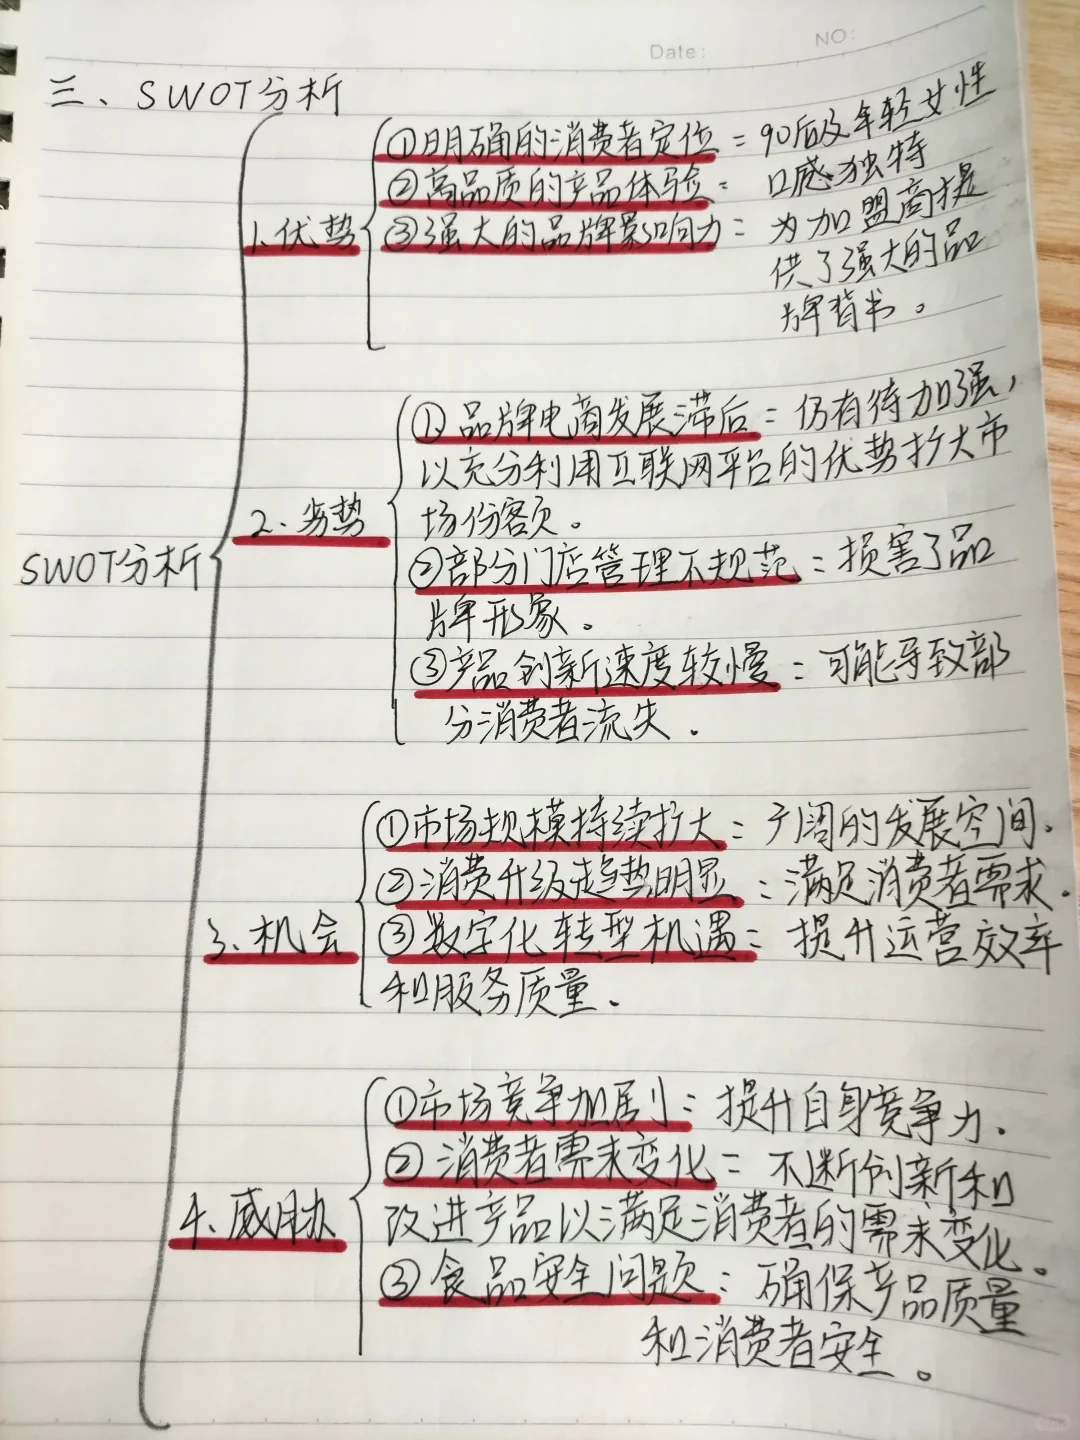 Date:
NO:
三、SWOT分析
SWOT分析
1.优势
①明确的消费者定位：90后及年轻女性
②高品质的产品体验：口感独特
③强大的品牌影响力：为加盟商提
供了强大的品
牌背书。
2.劣势
①品牌电商发展滞后：仍有待加强，
以充分利用互联网平台的优势扩大市
场份额。
②部分门店管理不规范：损害了品
牌形象。
③产品创新速度较慢：可能导致部
分消费者流失.
3.机会
①市场规模持续扩大：广阔的发展空间.
②消费升级趋势明显：满足消费者需求.
③数字化转型机遇：提升运营效率
和服务质量.
4.威胁
①市场竞争加剧：提升自身竞争力.
②消费者需求变化：不断创新和
改进产品以满足消费者的需求变化。
③食品安全问题：确保产品质量
和消费者安全。